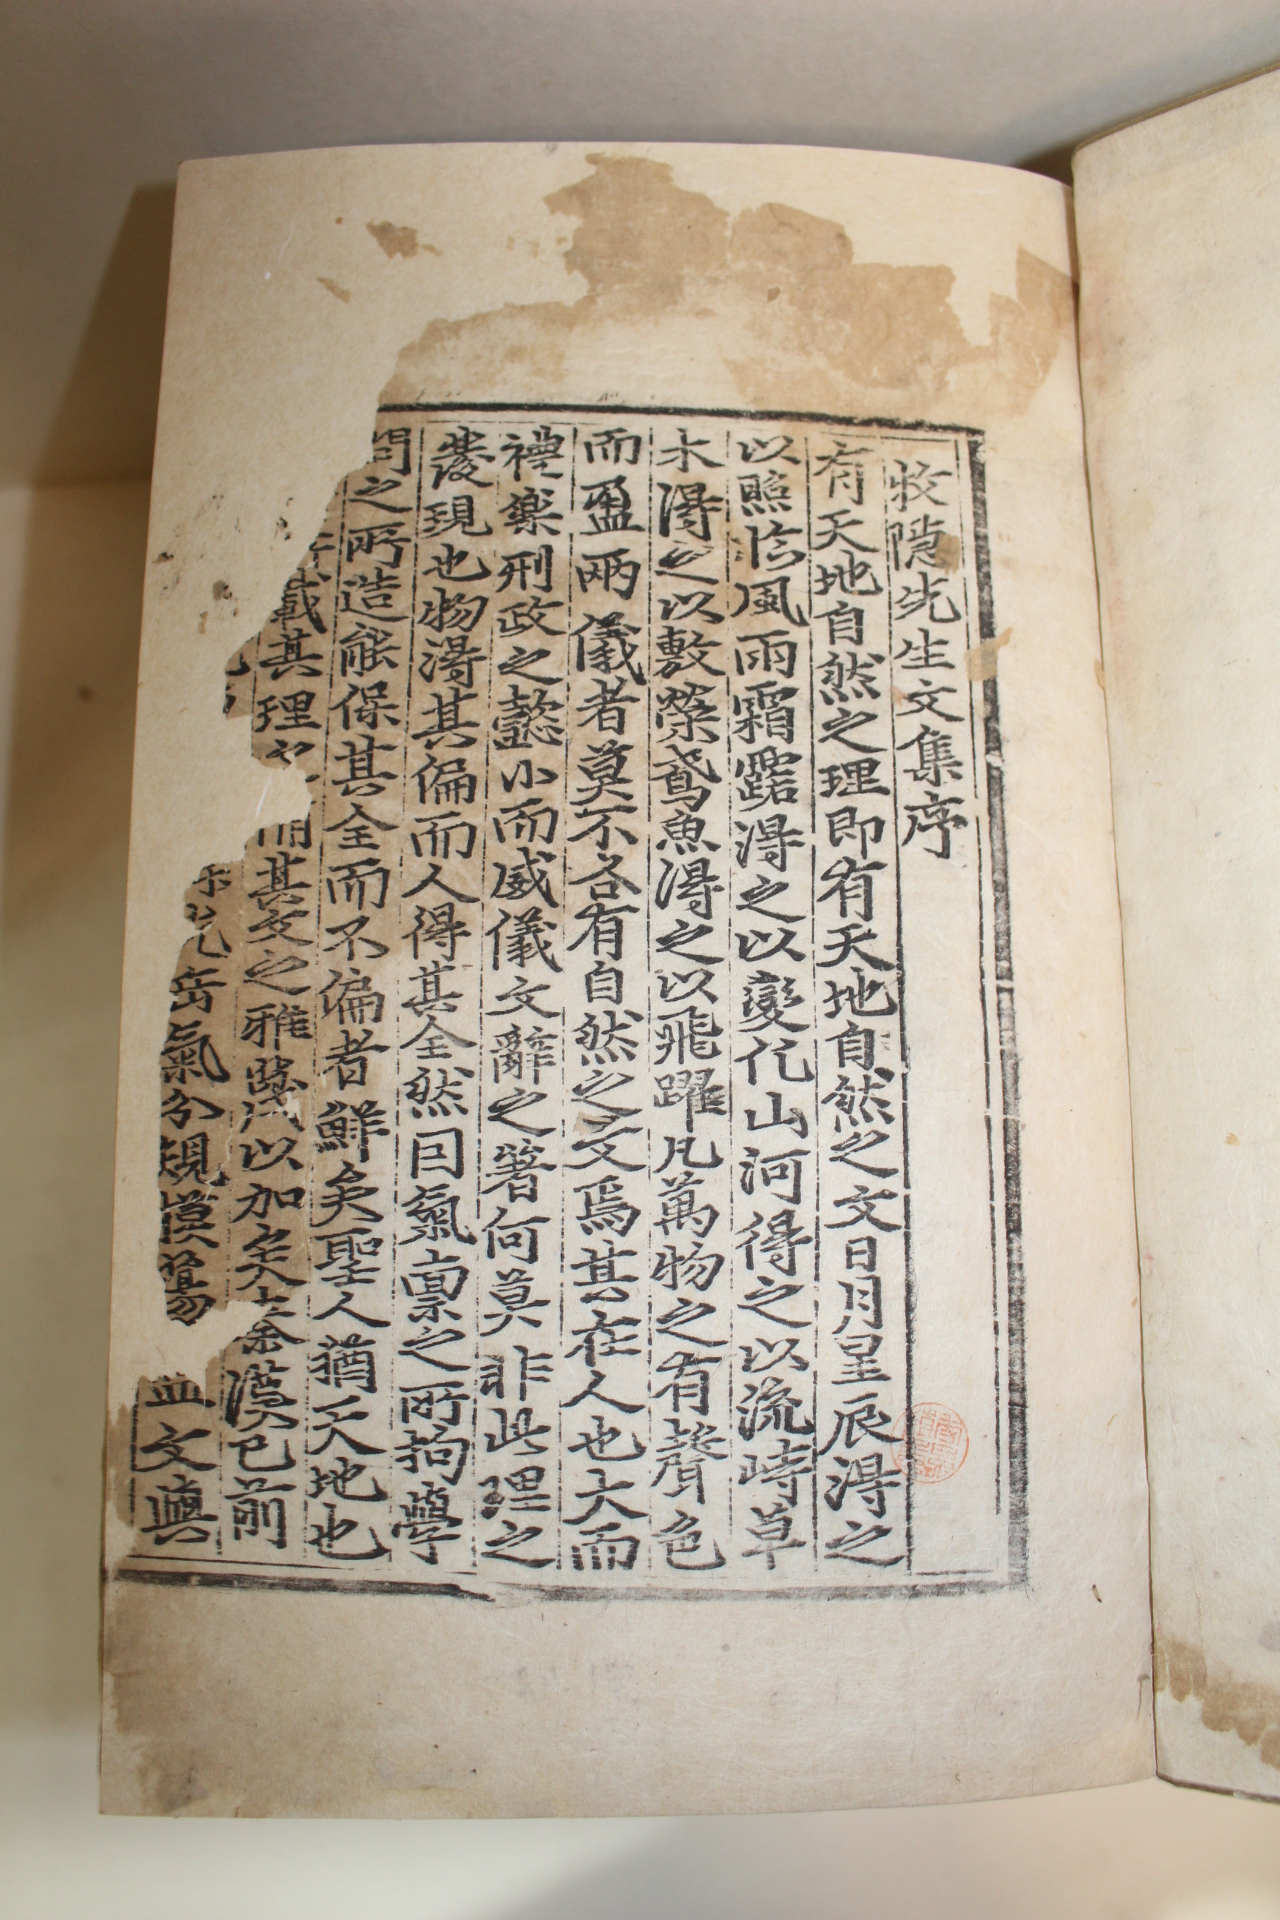 牧隱先生文集序
有天地自然之理即有天地自然之文日月星辰得之
以照臨風雨霜露得之以變化山河得之以流峙草
木得之以敷榮鳶魚得之以飛躍凡萬物之有聲色
而盈兩儀者莫不各有自然之文焉其在人也大而
禮樂刑政之懿小而威儀文辭之著何莫非此理之
發現也物得其偏而人得其全然因氣稟之所拘學
問之所造能保其全而不偏者鮮矣聖人猶天地也
載其理 其文之雅蔑以加矣秦漢已前
氣分規模蕩 文與